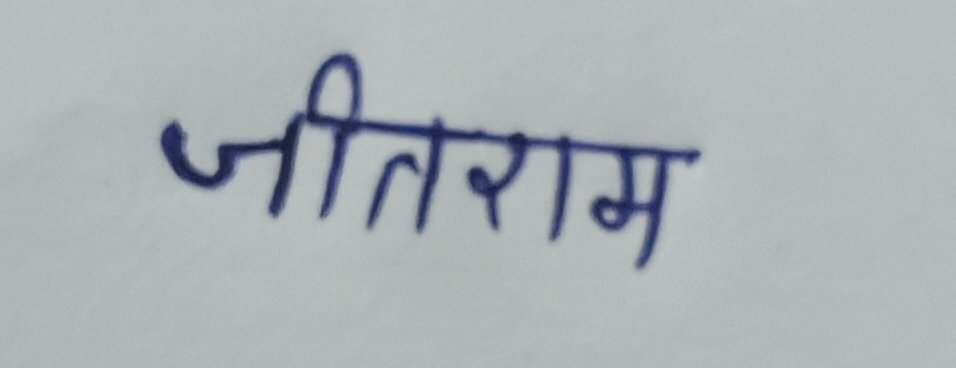 जीतराम